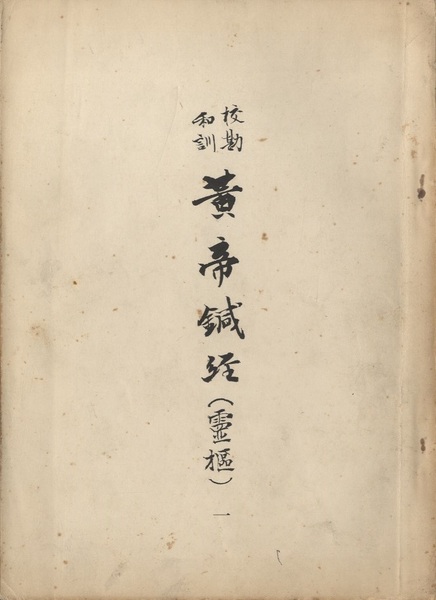 校勘
和訓
黄帝鍼経(靈樞) 一